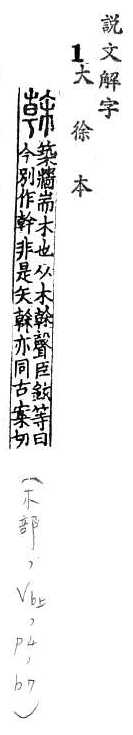 説文解字
1大徐本
榦築牆耑木也从木倝聲臣鉉等曰
今別作幹非是矢榦亦同古案切
（木部，V6上，P4，b7）